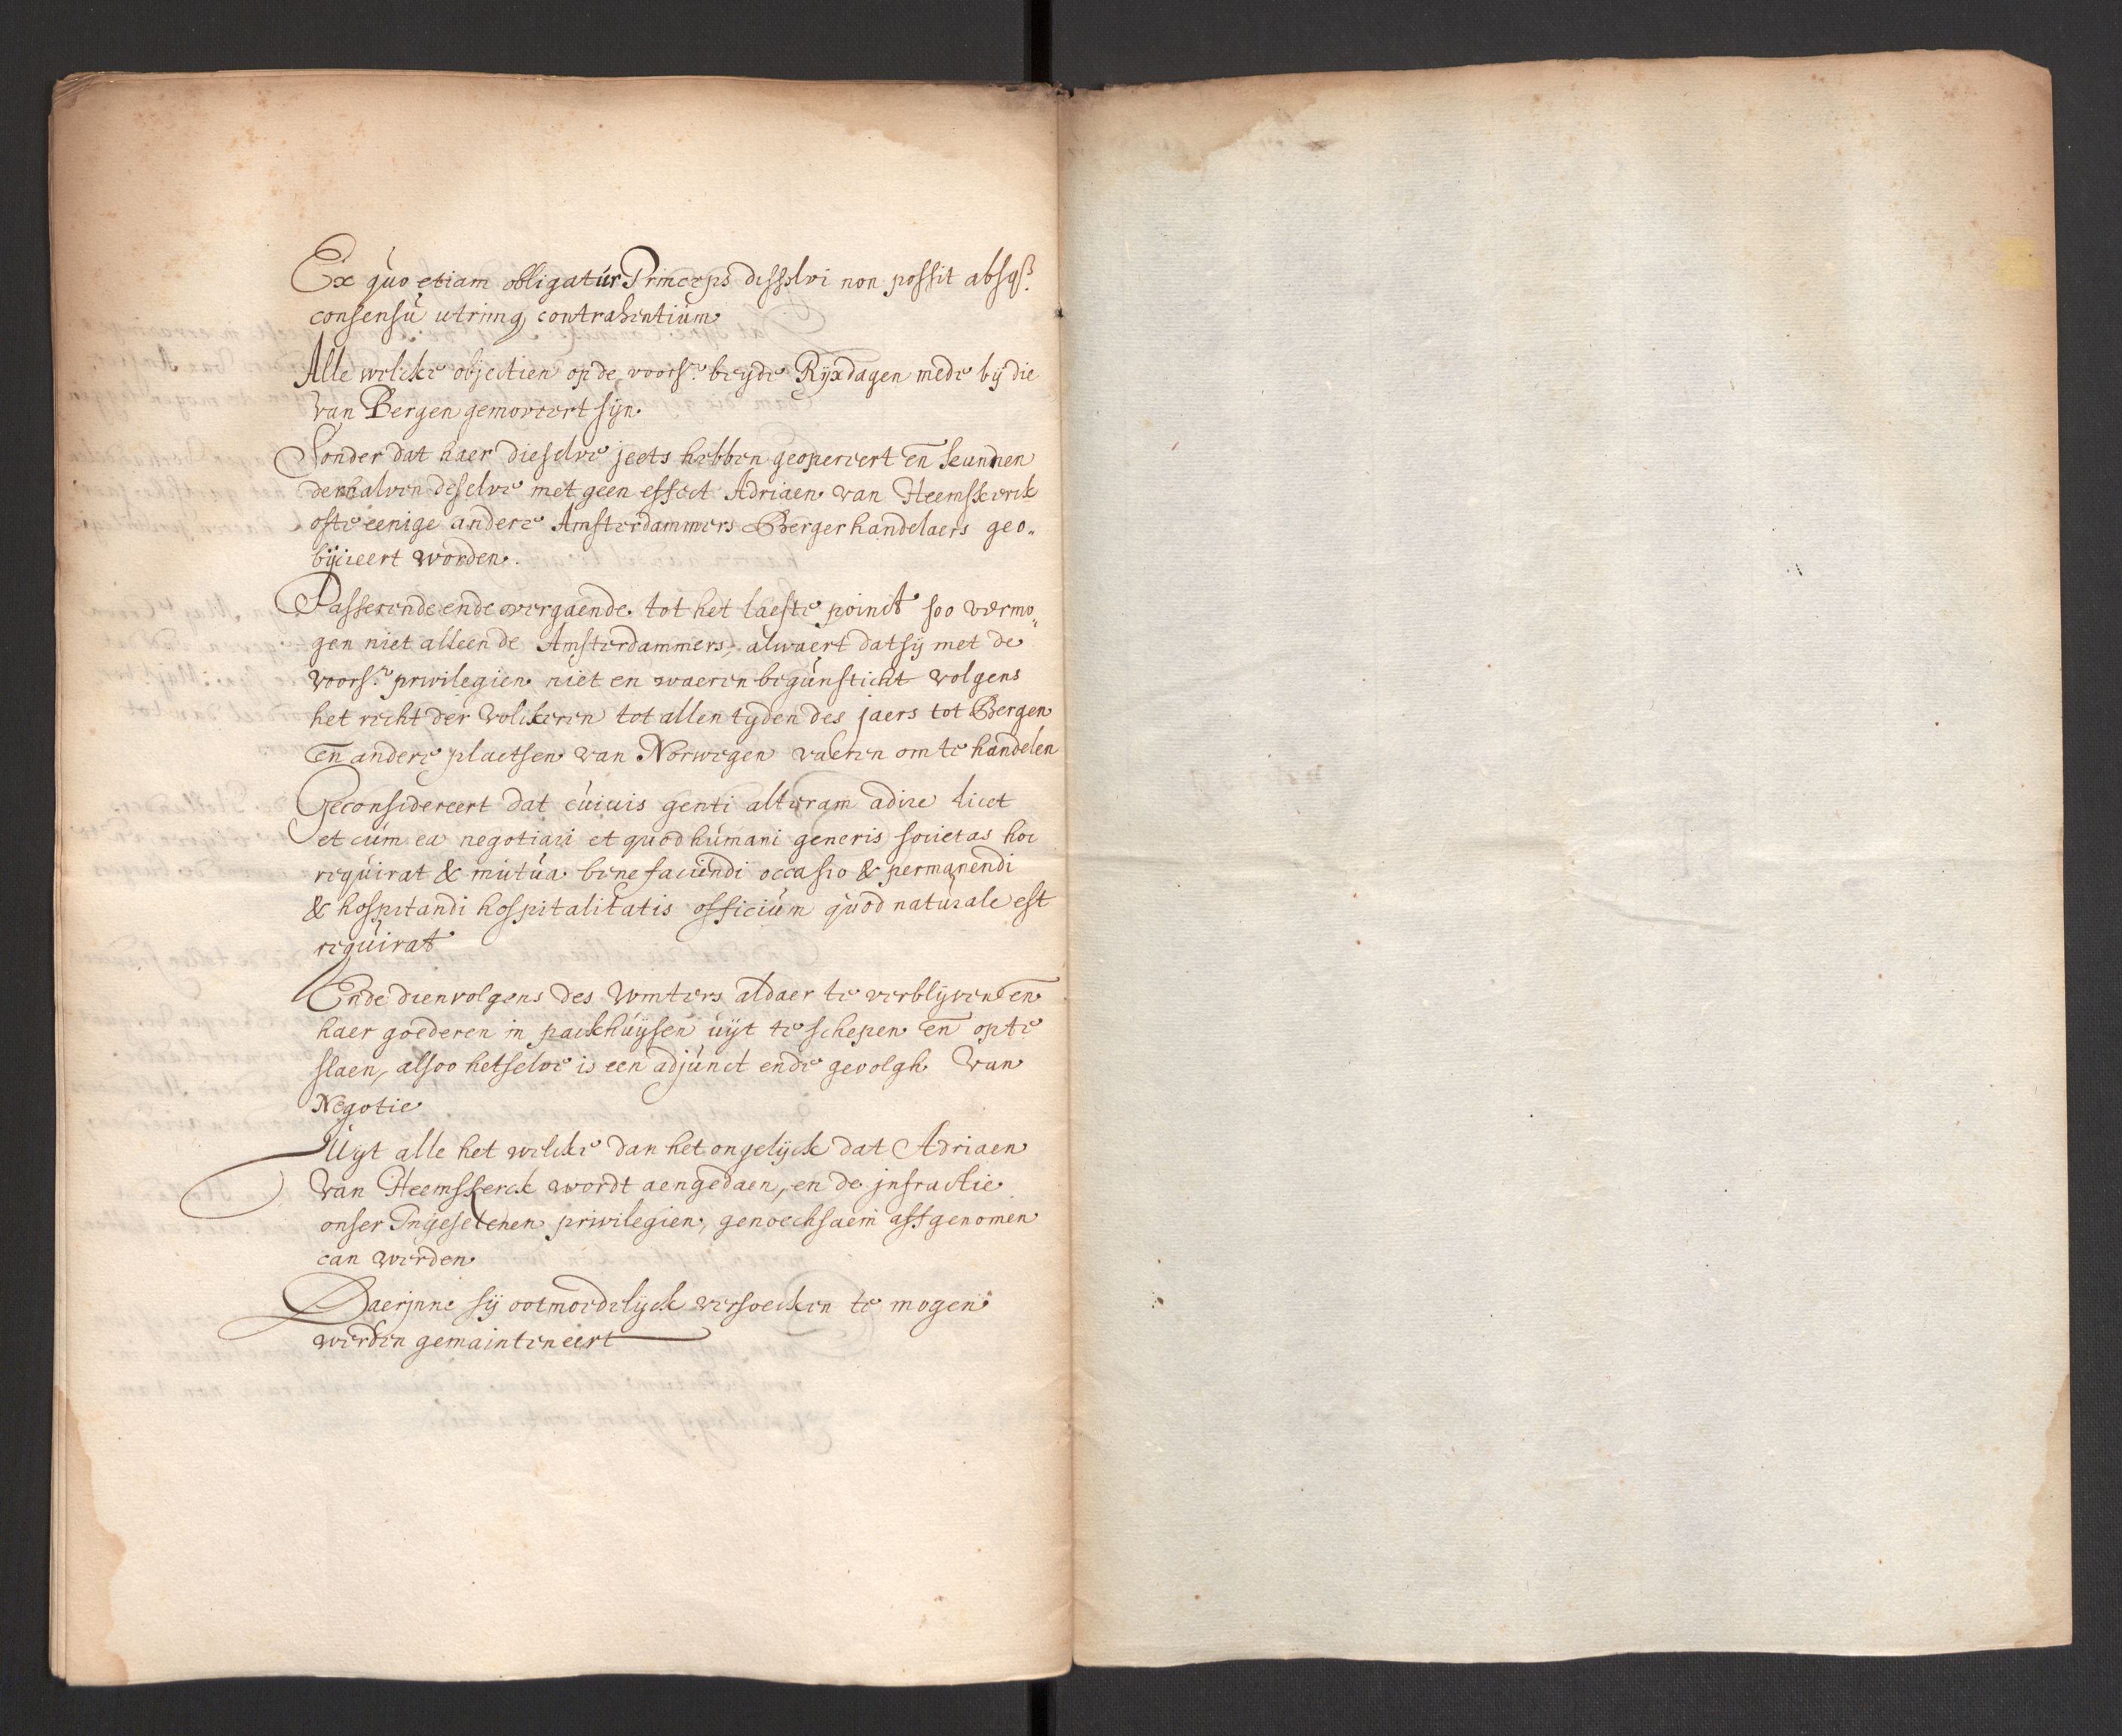 Ex quo etiam obligatur Princeps dissolvi non possit absqȝ
consensu utrimqȝ contrahentium
Alle welcke objectien op de voors.e beyde Rijxdagen mede bij die
van Bergen gemoveert sijn
Sonder dat haer dieselve jeets hebben geopereert en̄ kunnen
derhalven deselve met geen effect Adriaen van Heemskerck
ofte eenige andere Amsterdammers Bergerhandelaers geo„
bijcieert worden.
Passerende ende overgaende tot het laeste poinct soo vermo„
gen niet alleen de Amsterdammers, alwaert dat sij met de
voors.e privilegien niet en waeren begunsticht volgens
het recht der volckeren tot allen tyden des jaers tot Bergen
en̄ andere plaetsen van Norwegen vaeren om te handelen
Geconsidereert dat cuivis genti alteram adire licet
et cum ea negotiari et quod humani generis societas hoc
requirat & mutua benefaciendi occasio & permanendi
& hospitandi hospitalitatis officium quod naturale est
requirat
Ende dienvolgens des winters aldaer te verblijven en̄
haer goederen in packhuysen uyt te schepen en̄ op te
slaen, alsoo hetselve is een adjunct ende gevolgh van
Negotie
Uyt alle het welcke dan het ongelijck dat Adriaen
van Heemskerck wordt aengedaen, en de jnfractie
onser Ingesetenen privilegien, genoechsaem affgenomen
can werden
Daerjnne sij ootmoedelyck versoecken te mogen
werden gemainteneert